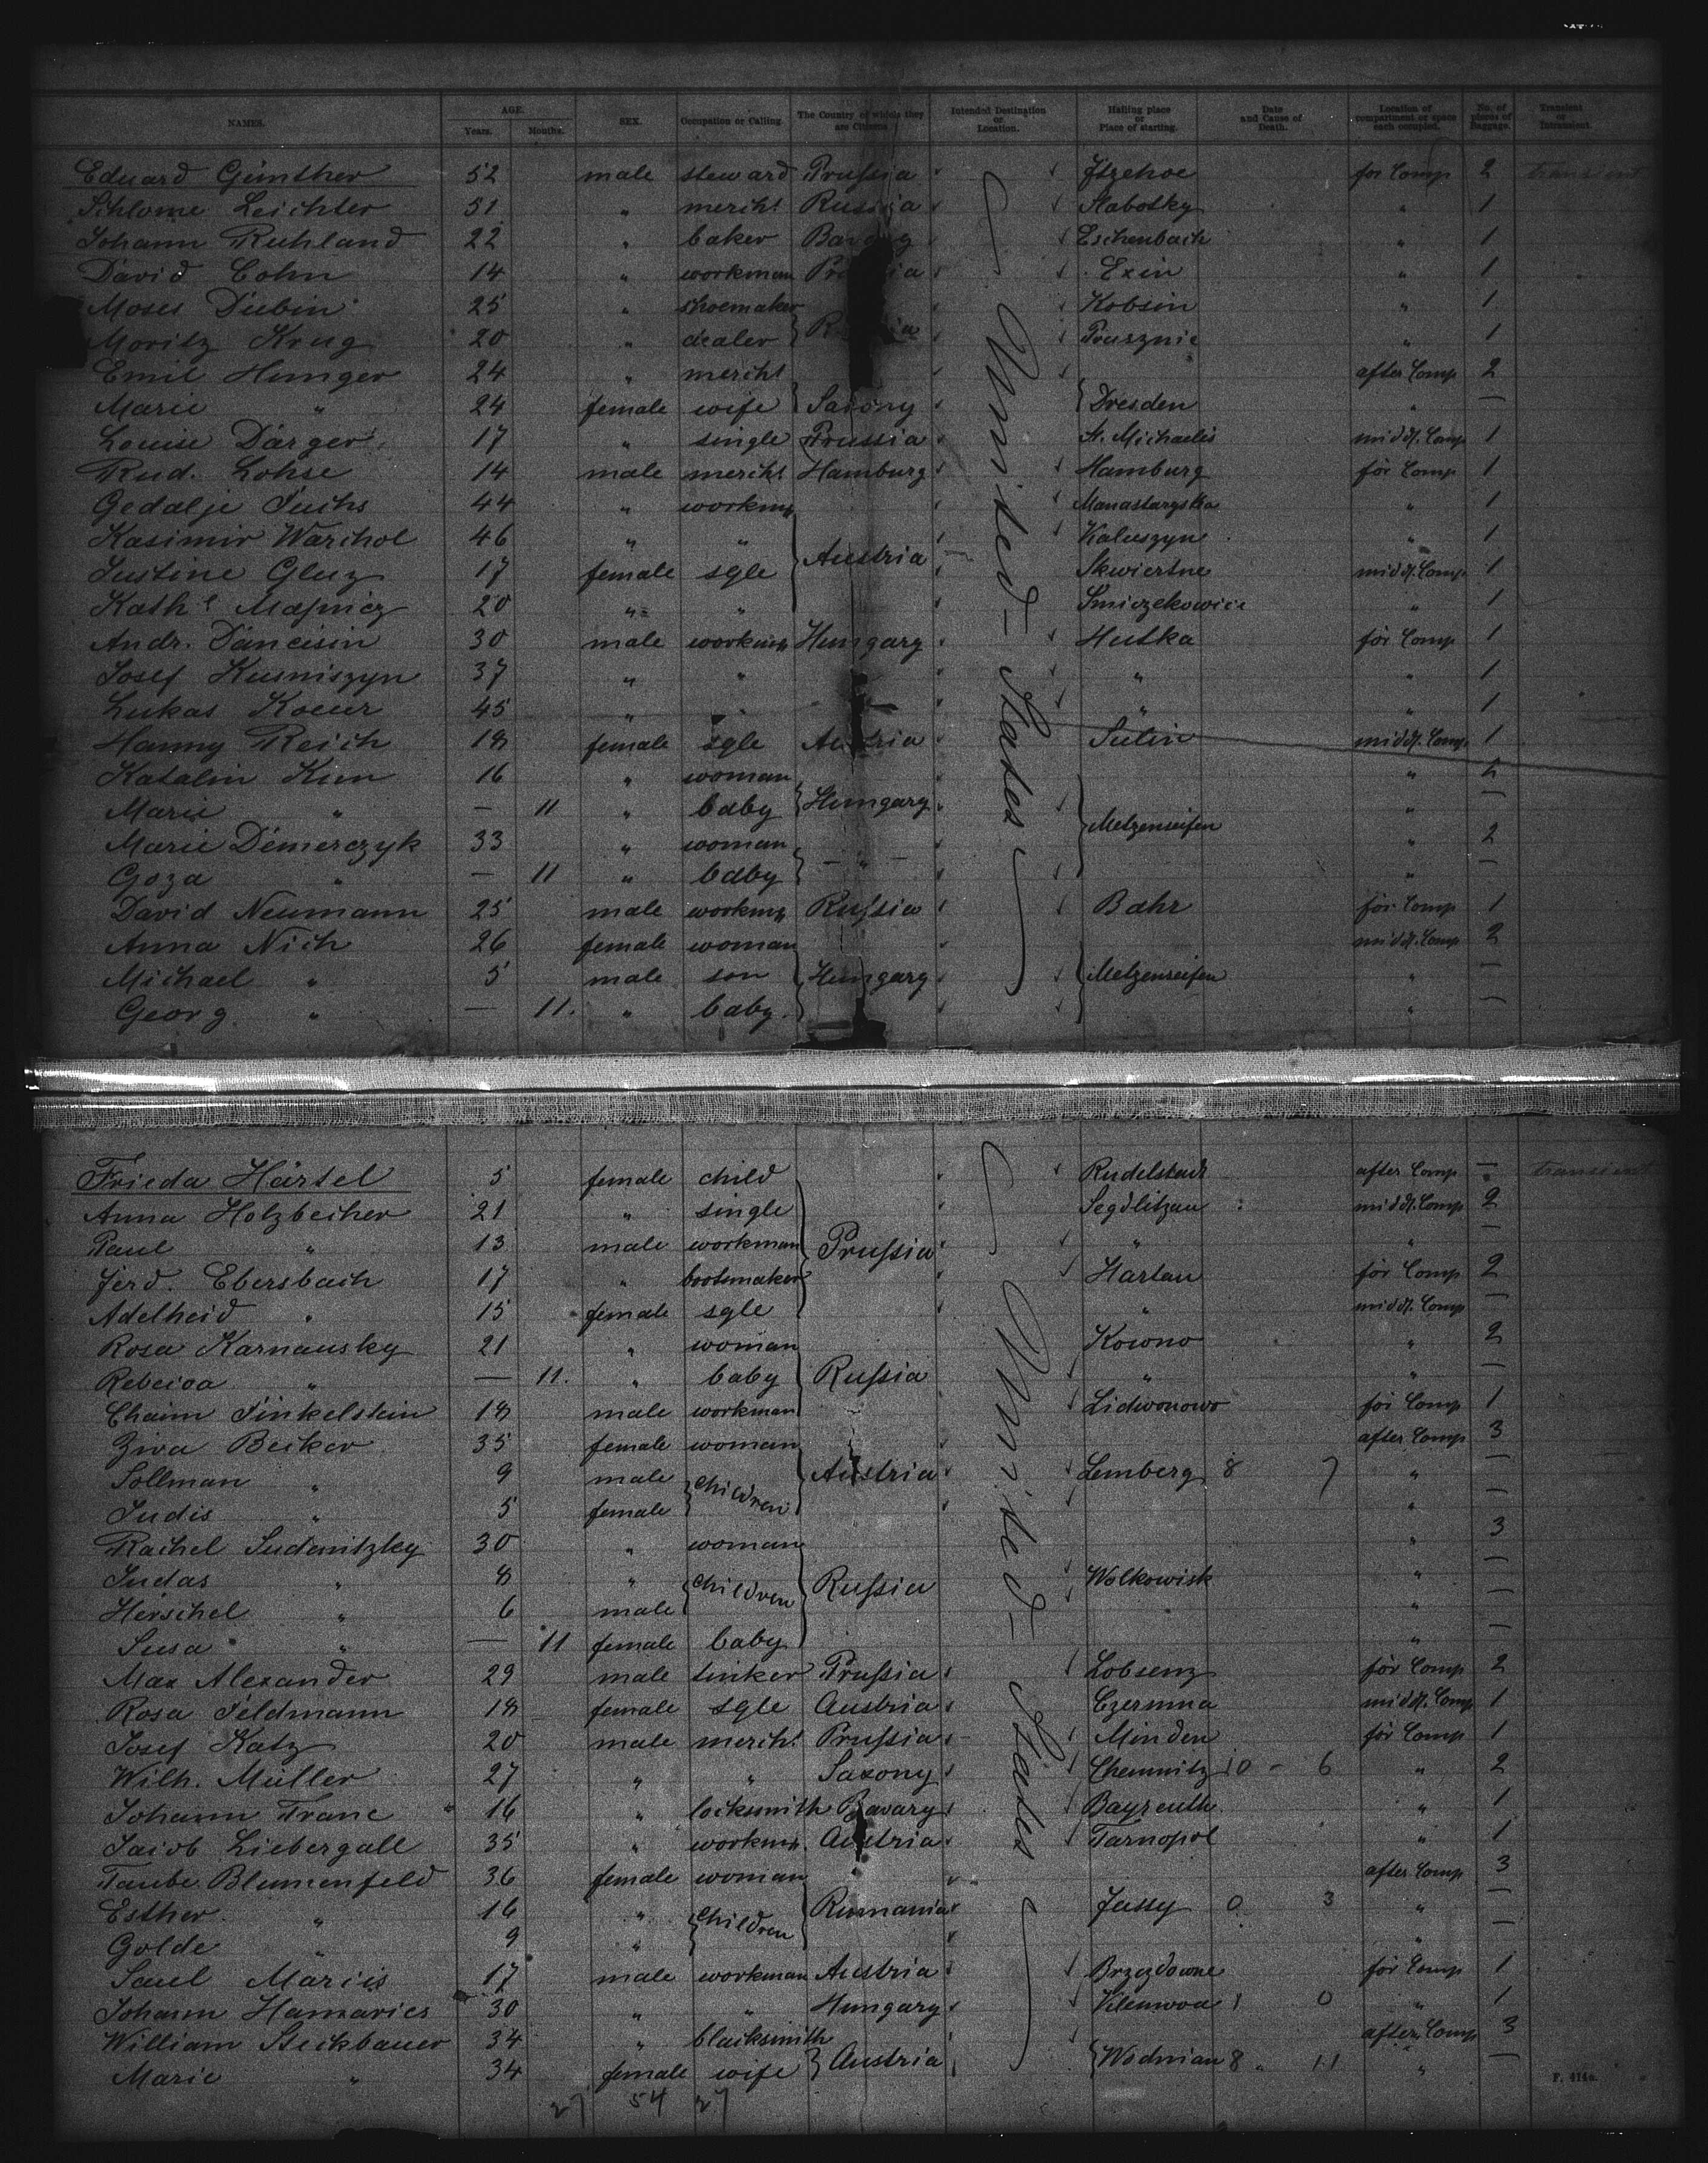 NAMES. AGE. Years. Months. SEX. Occupation or Calling. The Country of which they are Citizens. Intended Destination or Location. Hailing place or Place of starting. Date and Cause of Death. Location of compartment or space each occupied. No. of pieces of Baggage. Transient or Intransient.
Eduard Günther 52 male steward Prussia Itzehoe for Comp 2 transient
Schlome Leichter 51 " mercht Russia Slabotky " 1
Johann Ruhland 22 " baker Eschenbach " 1
David Cohn 14 " workman Prussia Exin " 1
Moses Dubin 25 " shoemaker Kobsin " 1
Moritz Krug 20 " dealer Russia Prusznic " 1
Emil Hunger 24 " mercht after Comp 2
Marie " 24 female wife Saxony Dresden " —
Louise Därger 17 " single Prussia St. Michaelis middl. Comp 1
Rud. Lohse 14 male mercht Hamburg Hamburg for Comp 1
Gedalje Fuchs 44 " workmn Manastargska " 1
Kasimir Warchol 46 " " Kaluszyn " 1
Justine Gluz 17 female sgle Austria Skwiertne middl. Comp 1
Kath. 20 " " Smiczekowice " 1
Andr. Dancisin 30 male workmn Hungary Hutka for Comp 1
Josef Kusniszyn 37 " " " " 1
Lukas Kocur 45 " " " " " 1
Hanny Reich 18 female sgle Austria Sulin middl. Comp 1
Katalin Kun 16 " woman " 2
Marie " — 11 " baby Hungary " —
Marie Demerczyk 33 " woman Metzenseifen " 2
Goza " — 11 " baby — " — " —
David Neumann 25 male workmn Russia Bahr for Comp 1
Anna Nich 26 female woman middl. Comp 2
Michael " 5 male son Hungary Metzenseifen " —
Georg " — 11. " baby " —
United States
Frieda Härtel 5 female child Rudelstadt after Comp — transient
Anna Holzbecher 21 " single Segdlitzau middl. Comp 2
Paul " 13 male workman Prussia " " —
Ferd. Ebersbach 17 " bootsmaker Hartau for Comp 2
Adelheid " 15 female sgle " middl. Comp —
Rosa Karnausky 21 " woman Kowno " 2
Rebecca " — 11. " baby Russia " " —
Chaim Finkelstein 18 male workman Lidwonowo for Comp 1
Ziva Becker 35 female woman after Comp 3
Sollman " 9 male children Austria Lemberg 8 7 " —
Judis " 5 female " —
Rachel Sudanitzky 30 " woman " 3
Judas " 8 " children Russia Wolkowisk " —
Herschel " 6 male " —
Susa " — 11 female baby " —
Max Alexander 29 male tinker Prussia Lobsenz for Comp 2
Rosa Feldmann 18 female sgle Austria Czermna middl. Comp 1
Josef Katz 20 male mercht Prussia Minden for Comp 1
Wilh. Müller 27 " " Saxony Chemnitz 10 - 6 " 2
Johann Franc 16 " locksmith Bavary Bayreuth " 1
Jacob Liebergall 35 " workmn. Austria Tarnopol " 1
Taube Blumenfeld 36 female woman after Comp 3
Esther " 16 " children Rumania Jassy 0 3 " —
Golde " 9 " " —
Saul Marcis 17 male workman Austria Brzezdowne for Comp 1
Johann Hamarics 30 " " Hungary Vilenwoa 1 0 " 1
William Steckbauer 34 " blacksmith after Comp 3
Marie " 34 female wife Austria Wodnian 8 " 11 " —
United States
27 54 27
F. 414a.